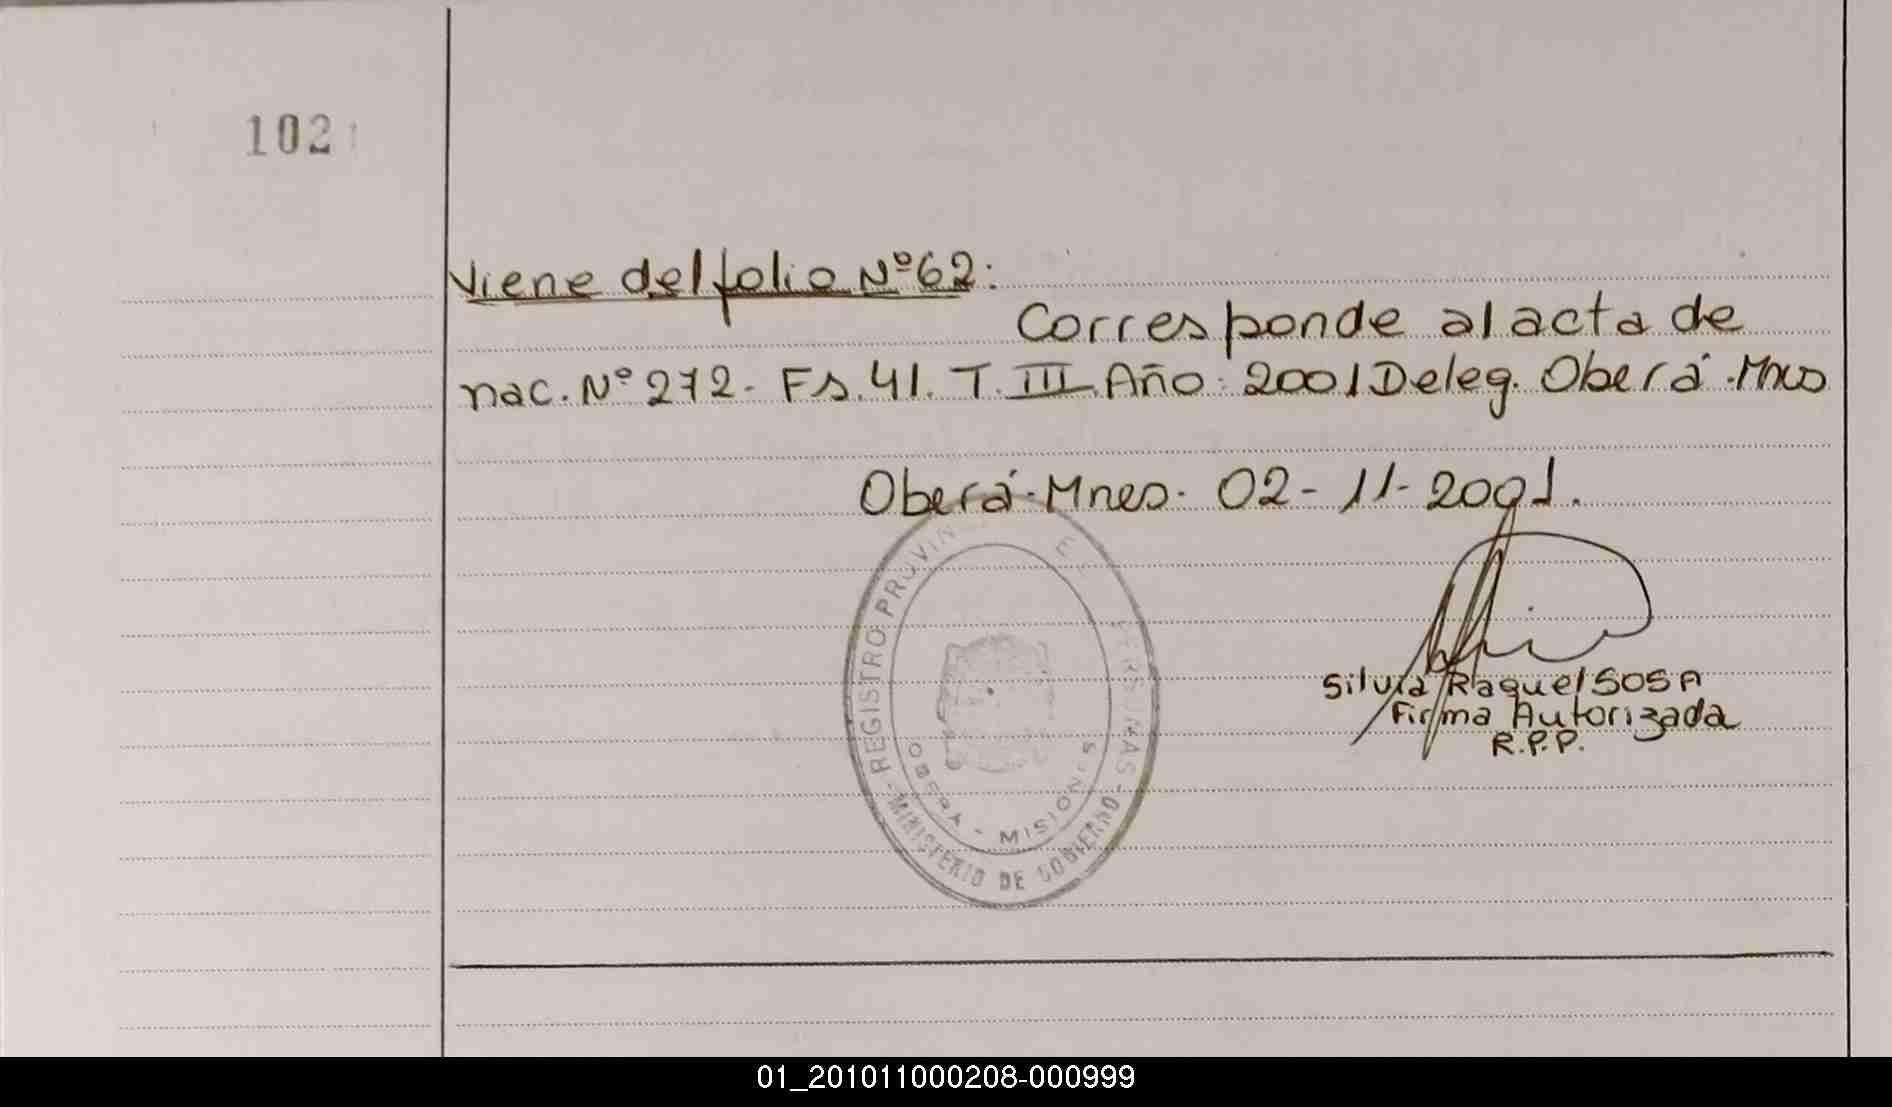 102
Viene del folio Nº62:
Corresponde al acta de
nac. Nº 272- Fs. 41. T. III. Año: 2001 Deleg. Oberá.Mnes
Oberá.Mnes. 02-11-2001.
REGISTRO PROVIN
PERSONAS
OBERA - MISIONES
MINISTERIO DE GOBIERNO
Silvia Raquel SOSA
Firma Autorizada
R.P.P.
01_201011000208-000999